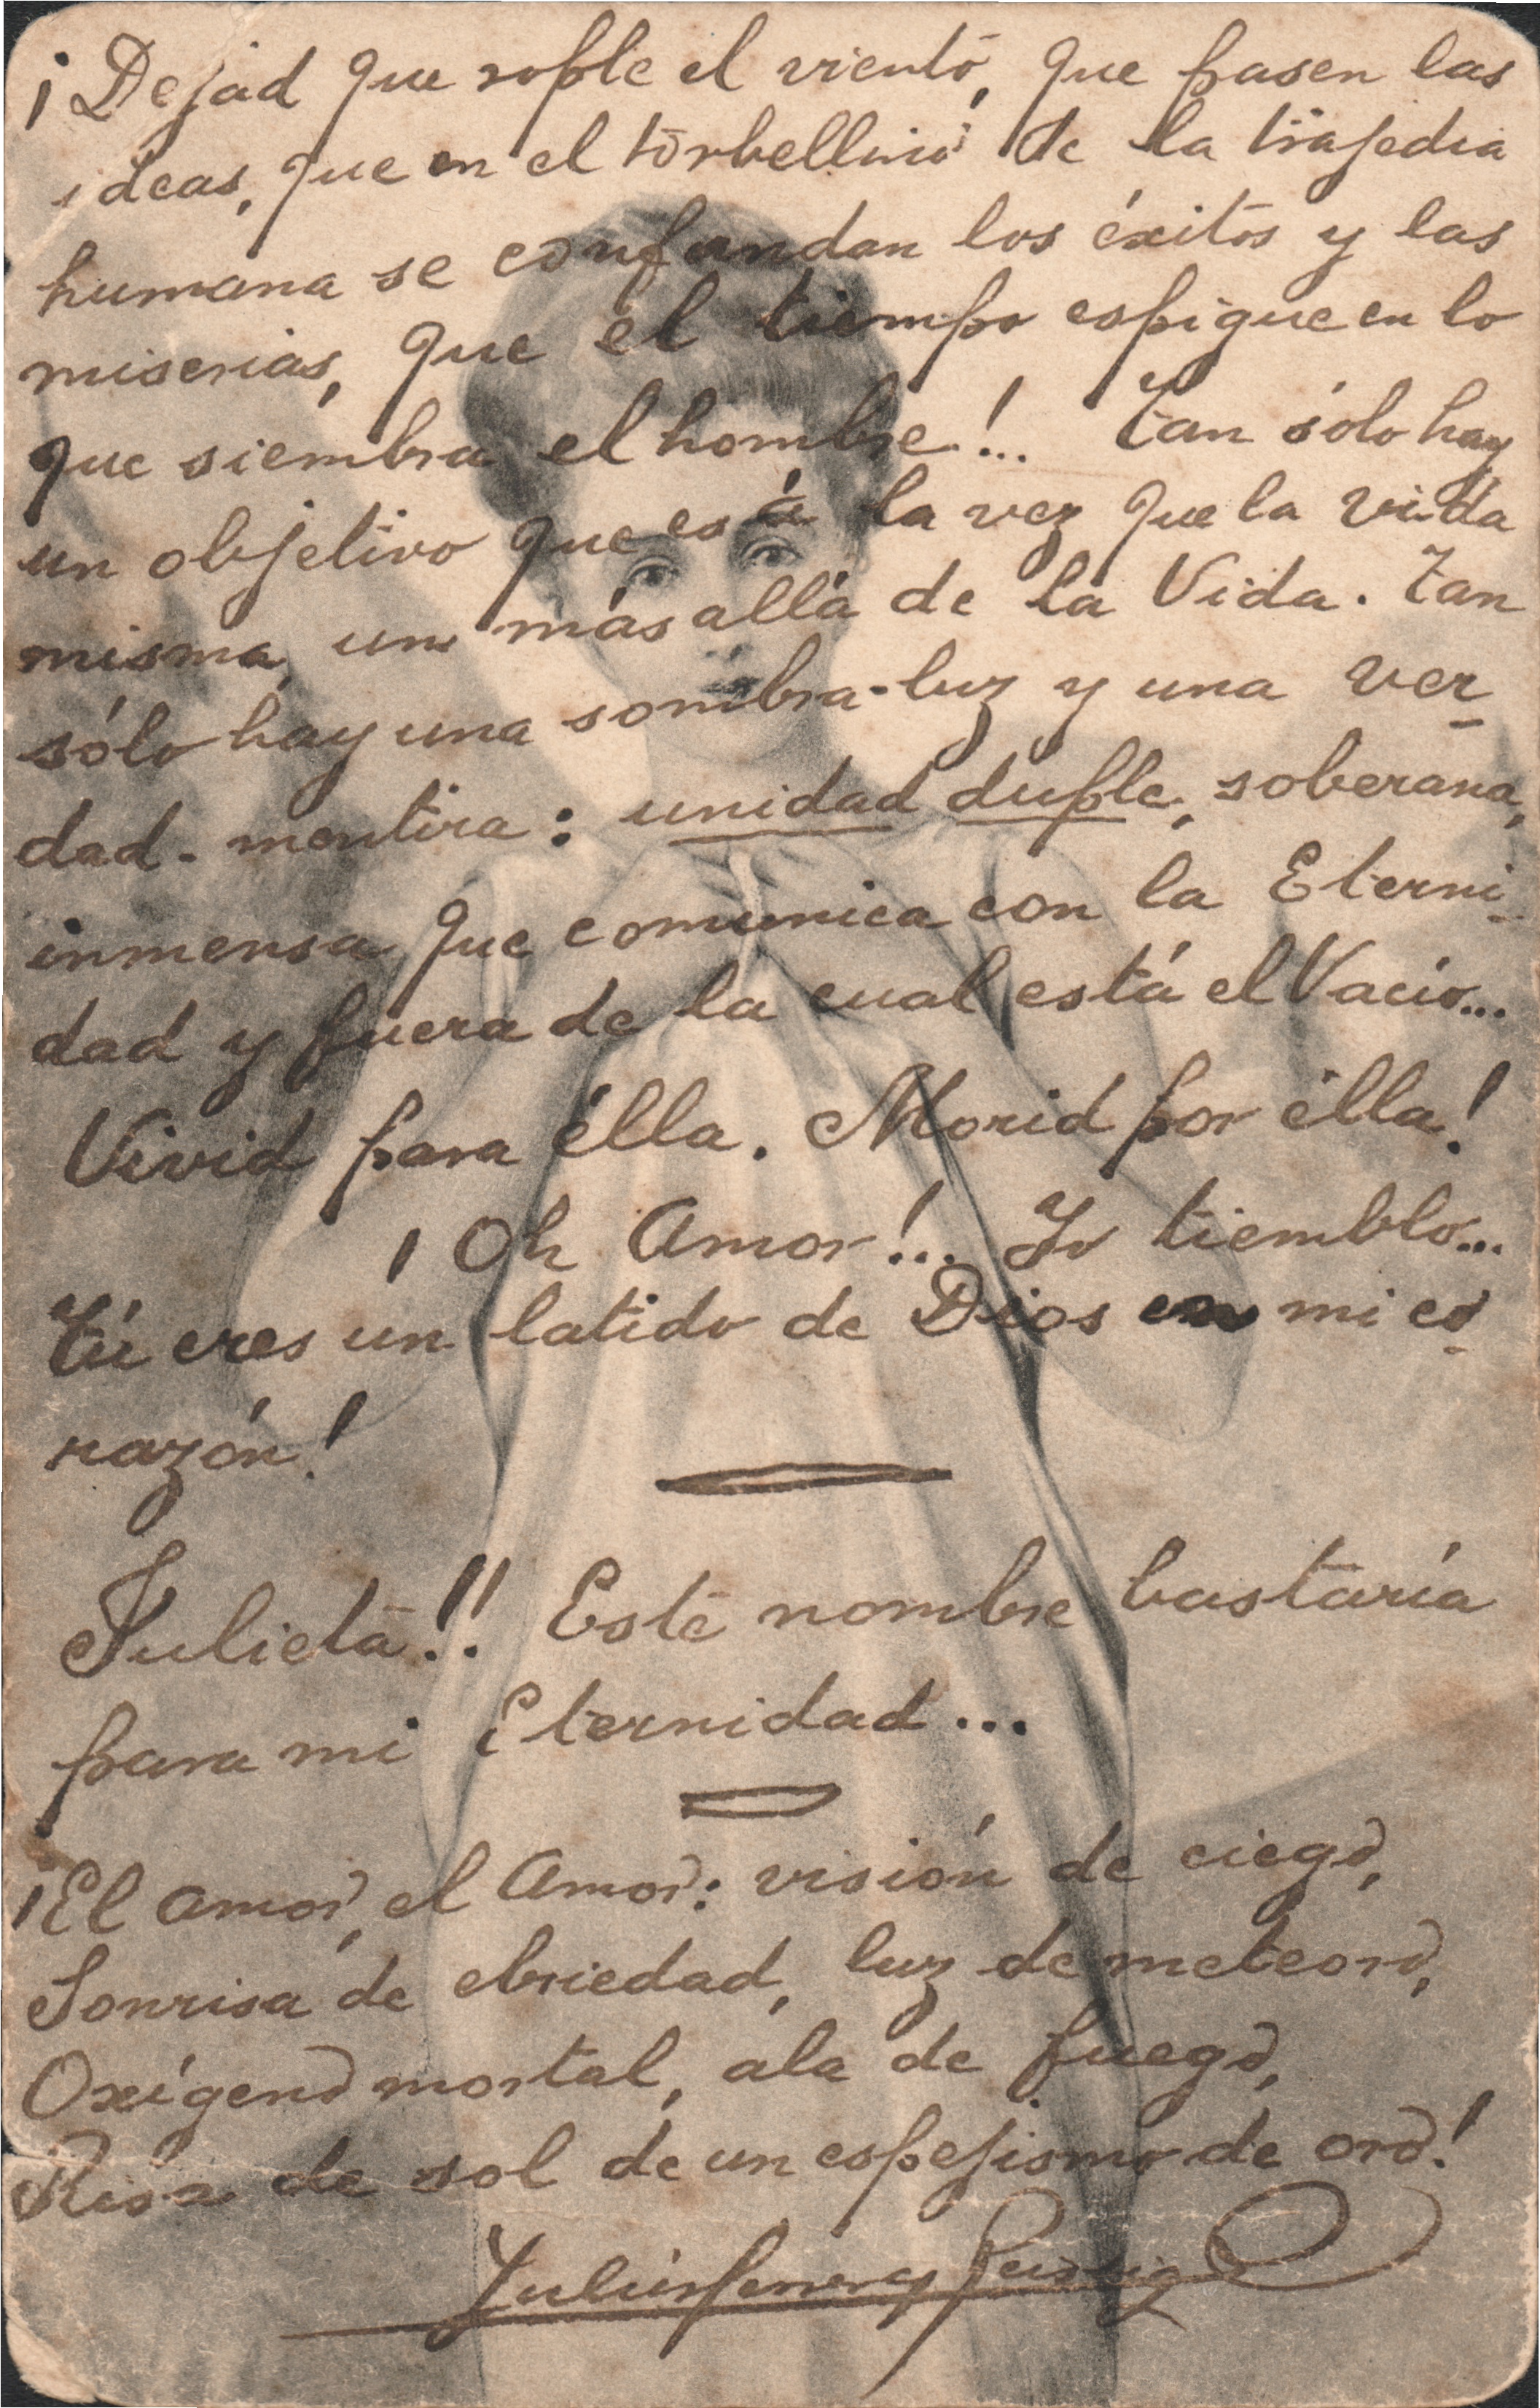 ¡Dejad que sople el viento, que pasen las
ideas, que en el torbellino de la trajedia
humana se confundan los éxitos y las
miserias, que el tiempo espigue en lo
que siembra el hombre!... Tan sólo hay
un objetivo que es á la vez que la vida
misma, un más allá de la Vida. Tan
sólo hay una sombra-luz y una ver
dad-mentira: unidad duple, soberana,
inmensa que comunica con la Eterni
dad y fuera de la cual está el Vacío...
Vivid para élla. Morid por élla!
¡Oh Amor!... Yo tiemblo...
Tú eres un latido de Dios en mi co
razón!
Julieta!! Este nombre bastaría
para mi Eternidad...
¡El amor, el Amor: visión de ciego,
Sonrisa de ebriedad, luz de meteoro,
Oxígeno mortal, ala de fuego,
Risa de sol de un espejismo de oro!
Julio Herrera y Reissig